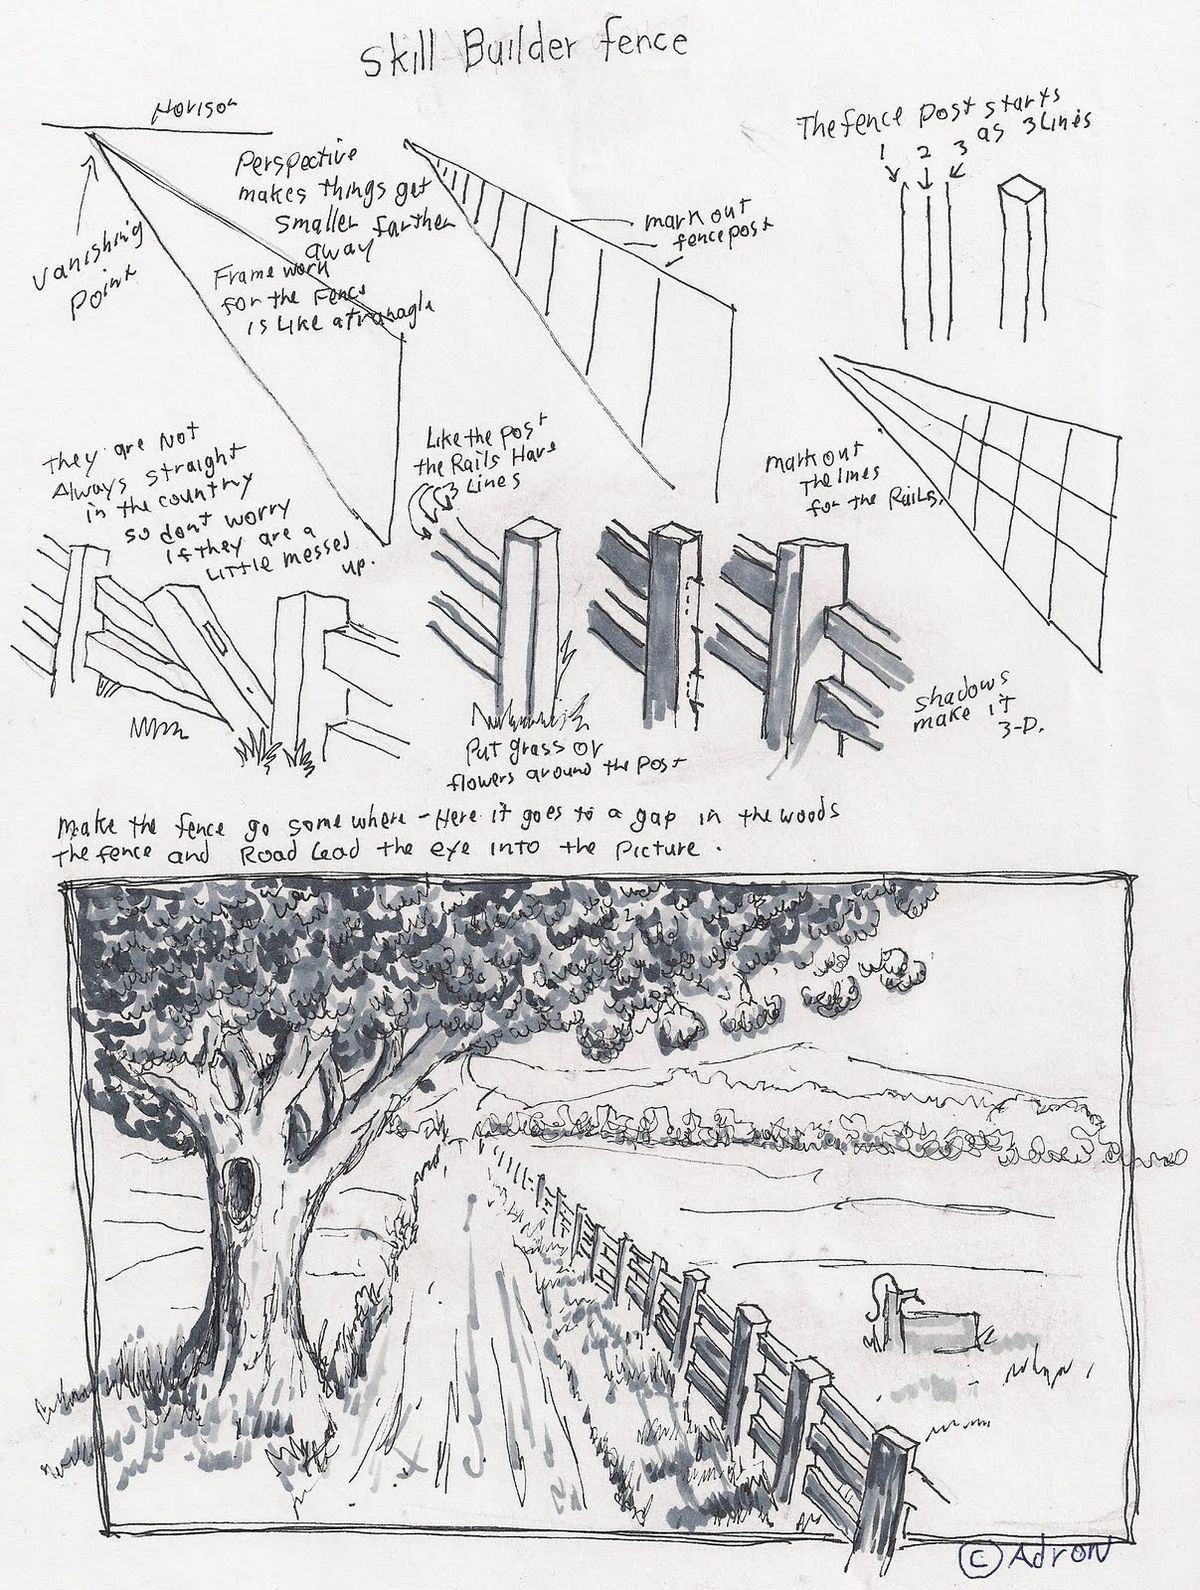 Skill Builder fence
Horison
Vanishing
Point
Perspective
makes things get
smaller farther
away
Frame work
for the Fence
is Like a tranagle
mark out
fence post
The fence post starts
as 3 lines
1 2 3
mark out
the lines
for the Rails.
they are Not
Always straight
in the country
so dont worry
if they are a
Little messed
up.
Like the post
the Rails Have
3 Lines
Put grass or
flowers around the post
shadows
make it
3-D.
Make the fence go some where - Here it goes to a gap in the woods
the fence and Road Lead the eye into the Picture.
© Adron